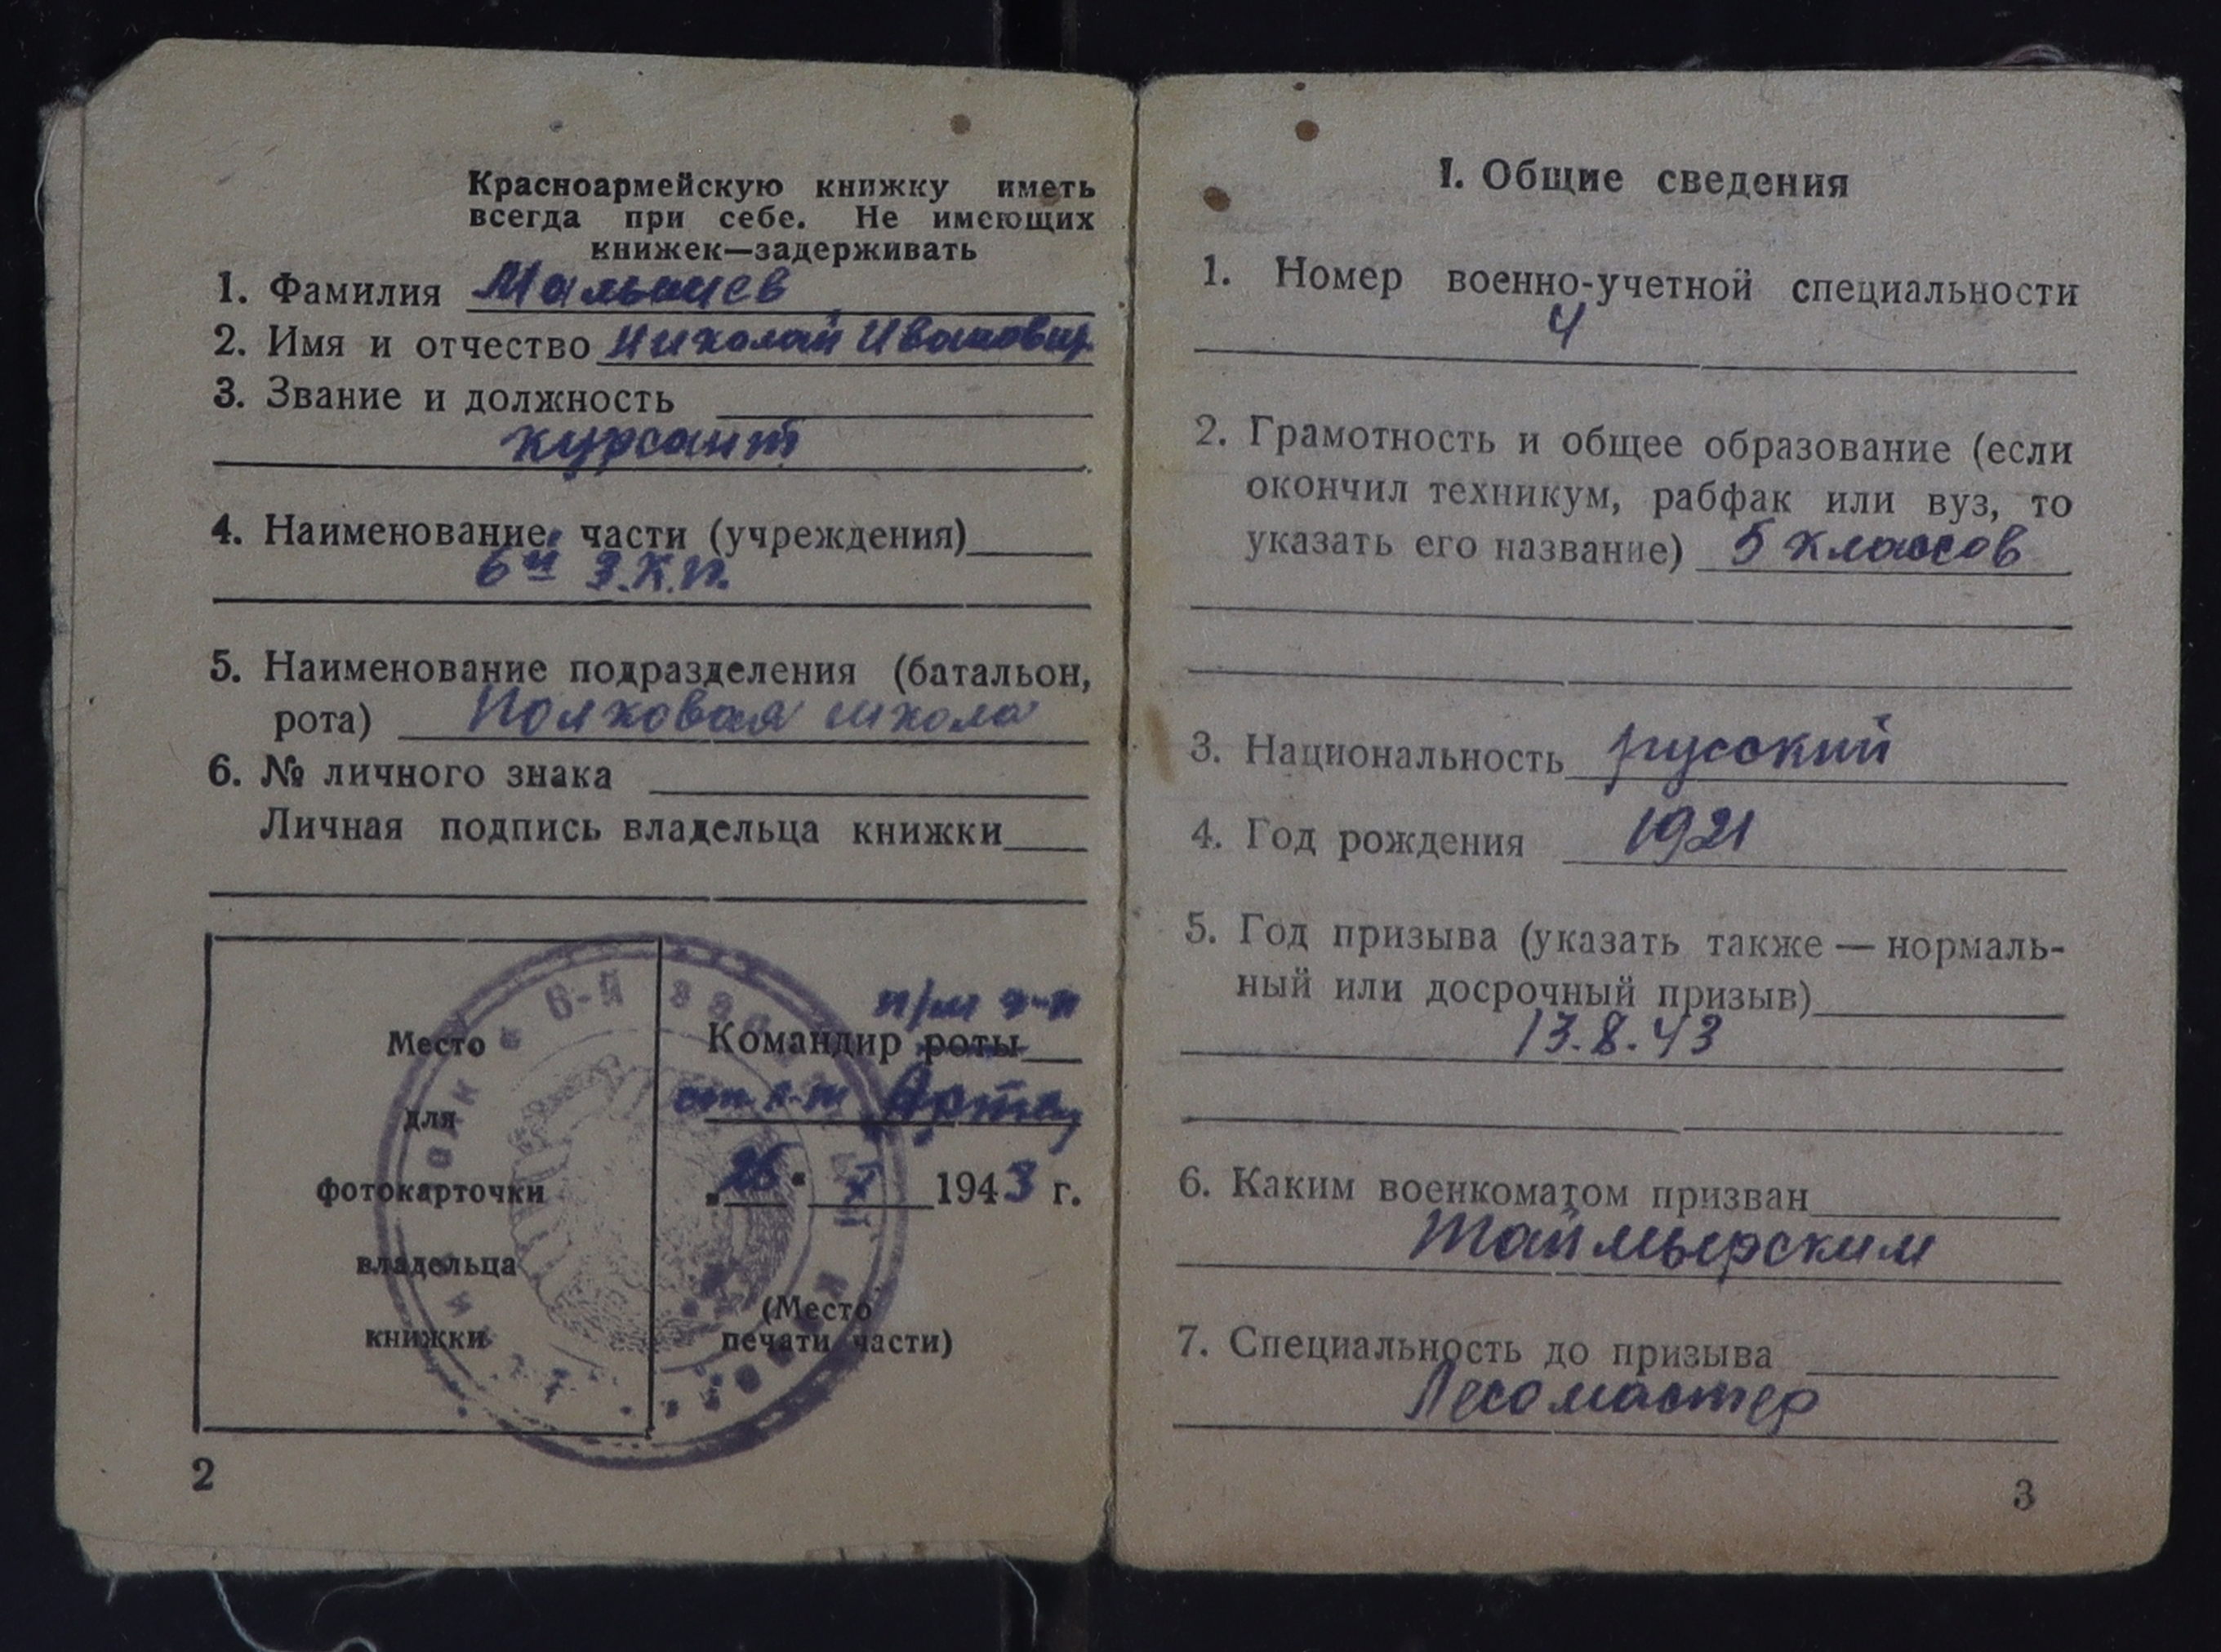 Красноармейскую книжку иметь
всегда при себе. Не имеющих
книжек—задерживать
1. Фамилия Малышев
2. Имя и отчество Николай Иванович
3. Звание и должность
курсант
4. Наименование части (учреждения)
6й З.К.П.
5. Наименование подразделения (батальон,
рота) Полковая школа
6. № личного знака
Личная подпись владельца книжки
Место
для
фотокарточки
владельца
книжки
6-Й
Командир роты
ст. л-т
26. X 1943 г.
(Место
печати части)
2
I. Общие сведения
1. Номер военно-учетной специальности
4
2. Грамотность и общее образование (если
окончил техникум, рабфак или вуз, то
указать его название) 5 классов
3. Национальность русский
4. Год рождения 1921
5. Год призыва (указать также — нормаль-
ный или досрочный призыв)
13.8.43
6. Каким военкоматом призван
Таймырским
7. Специальность до призыва
Лесомастер
3